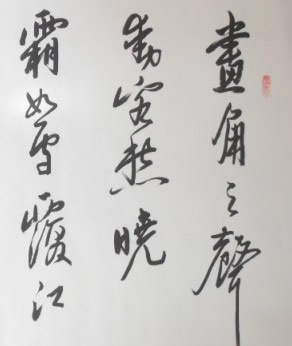 畫角三聲
動客愁曉
霜如雪覆江